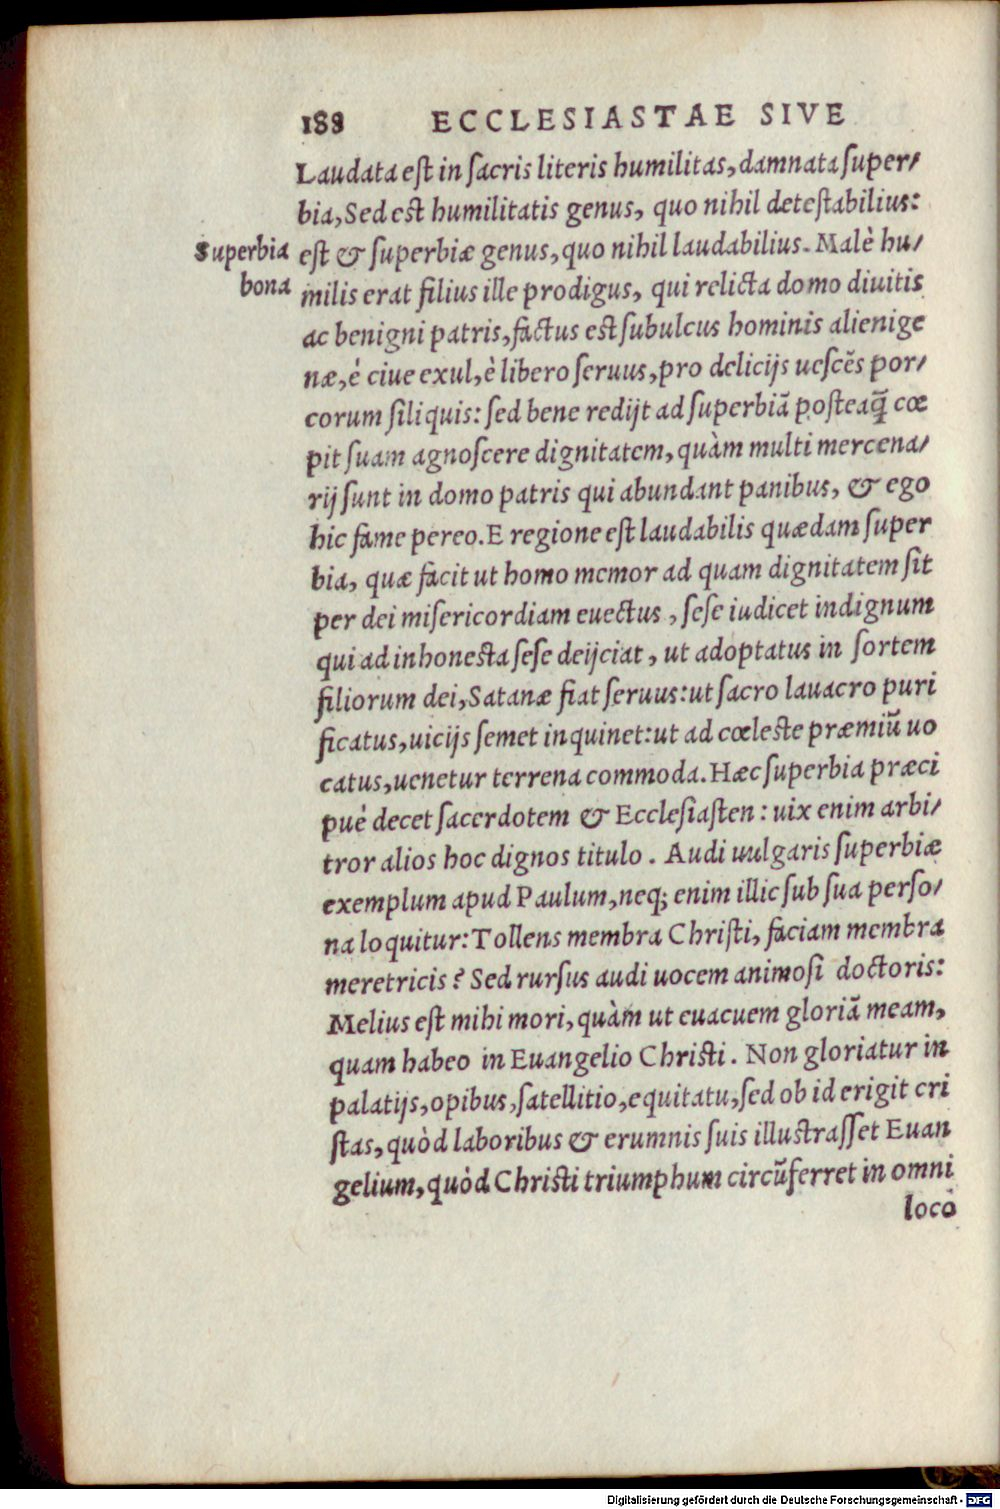 188 ECCLESIASTAE SIVE
Laudata est in sacris literis humilitas, damnata super/
bia, Sed est humilitatis genus, quo nihil detestabilius:
Superbia
bona
est & superbiæ genus, quo nihil laudabilius. Malè hu/
milis erat filius ille prodigus, qui relicta domo diuitis
ac benigni patris, factus est subulcus hominis alienige
næ, è ciue exul, è libero seruus, pro delicijs uescẽs por/
corum siliquis: sed bene redijt ad superbiã posteaq̃ cœ
pit suam agnoscere dignitatem, quàm multi mercena/
rij sunt in domo patris qui abundant panibus, & ego
hic fame pereo. E regione est laudabilis quædam super
bia, quæ facit ut homo memor ad quam dignitatem sit
per dei misericordiam euectus, sese iudicet indignum
qui ad inhonesta sese deijciat, ut adoptatus in sortem
filiorum dei, Satanæ fiat seruus: ut sacro lauacro puri
ficatus, uicijs semet inquinet: ut ad cœleste præmiũ uo
catus, uenetur terrena commoda. Hæc superbia præci
puè decet sacerdotem & Ecclesiasten: uix enim arbi/
tror alios hoc dignos titulo. Audi uulgaris superbiæ
exemplum apud Paulum, neq; enim illic sub sua perso/
na loquitur: Tollens membra Christi, faciam membra
meretricis? Sed rursus audi uocem animosi doctoris:
Melius est mihi mori, quàm ut euacuem gloriã meam,
quam habeo in Euangelio Christi. Non gloriatur in
palatijs, opibus, satellitio, equitatu, sed ob id erigit cri
stas, quòd laboribus & erumnis suis illustrasset Euan
gelium, quòd Christi triumphum circũferret in omni
loco
Digitalisierung gefördert durch die Deutsche Forschungsgemeinschaft - DFG